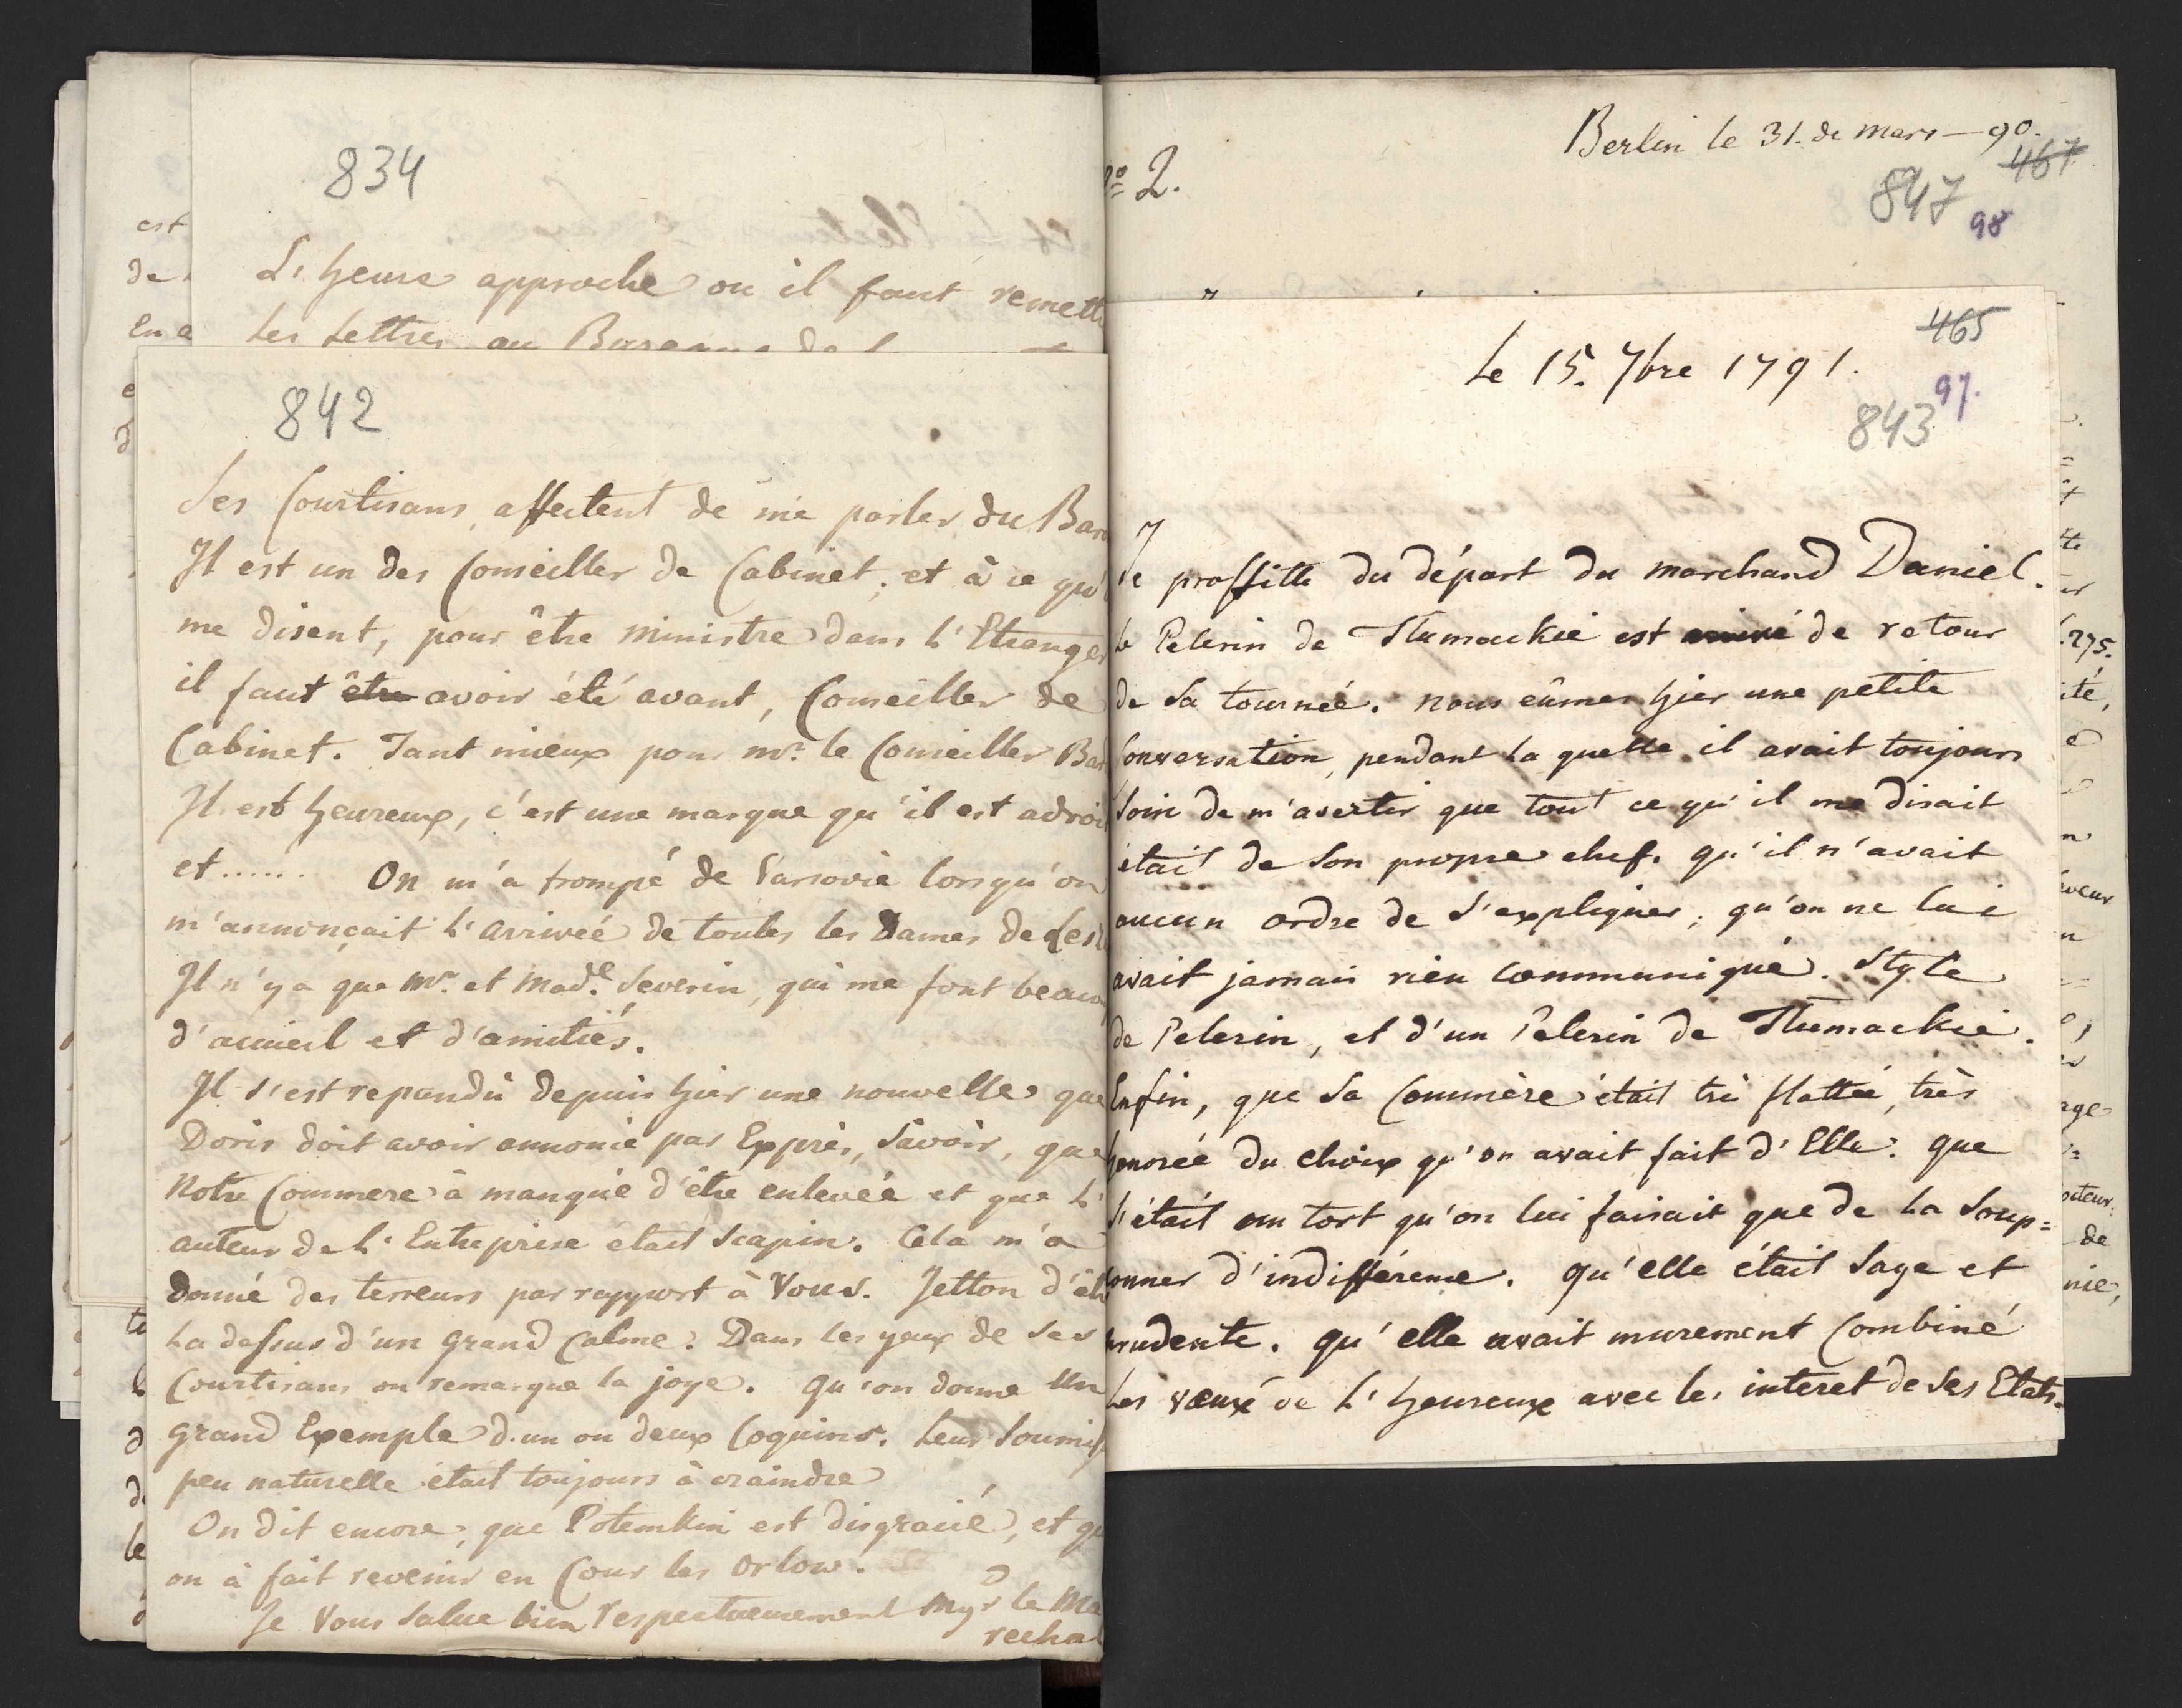 834
est
de
L'heure approche ou il faut remett
en a
les Lettres au
842
Ses Courtisans, affectent de me parler du Bar
Il est un des Conseiller de Cabinet; et à ce qu'
me disent, pour être Ministre dans l'Etranger
il faut être avoir été avant, Conseiller de
Cabinet. Tant mieux pour mr. le Conseiller Bar
Il est heureux, c'est une marque qu'il est adroi
et...... On m'a trompé de Varsovie lorsqu'on
m'annonçait l'arrivée de toutes les Dames de
Il n'y a que Mr. et Made. Severin, qui me font beauc
d'acueil et d'amitiés.
Il s'est repandû depuis hier une nouvelle que
Doris doit avoir annoncé par Exprès, Savoir, que
Notre Commere à manqué d'être enlevée et que l'
auteur de l'Entreprise était Scapin. Cela m'a
Donné des terreurs par rapport à Vous. Jetton d'
la dessus d'un grand Calme. Dans les yeux de ses
Courtisans on remarque la joye. Qu'on donne Un
grand Exemple d'un ou deux Coquins. Leur Soumiss
peu naturelle était toujours à craindre
On dit encore, que Potemkin est disgracié, et qu
on à fait revenir en Cour les Orlow.
Je Vous Salue bien respectueusement Mgr le Ma
rechal
Berlin le 31. de Mars - 90.
467
no 2.
847
98
465
Le 15. 7bre 1791.
97.
843
Je proffitte du départ du marchand Daniel.
le Pelerin de Tlumackie est arrivé de retour
de Sa tournée. nous eûmes hier une petite
Conversation, pendant la quelle il avait toujours
Soin de m'avertir que tout ce qu'il me disait
était de Son propre chef. qu'il n'avait
aucun ordre de S'expliquer; qu'on ne lui
avait jamais rien communiqué. Style
de Pelerin, et d'un Pelerin de Tlumackie.
Enfin, que Sa Commère était trè flattée, très
honorée du choix qu'on avait fait d'Elle. que
s'était un tort qu'on lui faisait que de la Soup=
onner d'indifférence. qu'elle était Sage et
prudente. qu'elle avait murement Combiné
les vœux de l'heureux avec les interet de Ses Etats.
275.